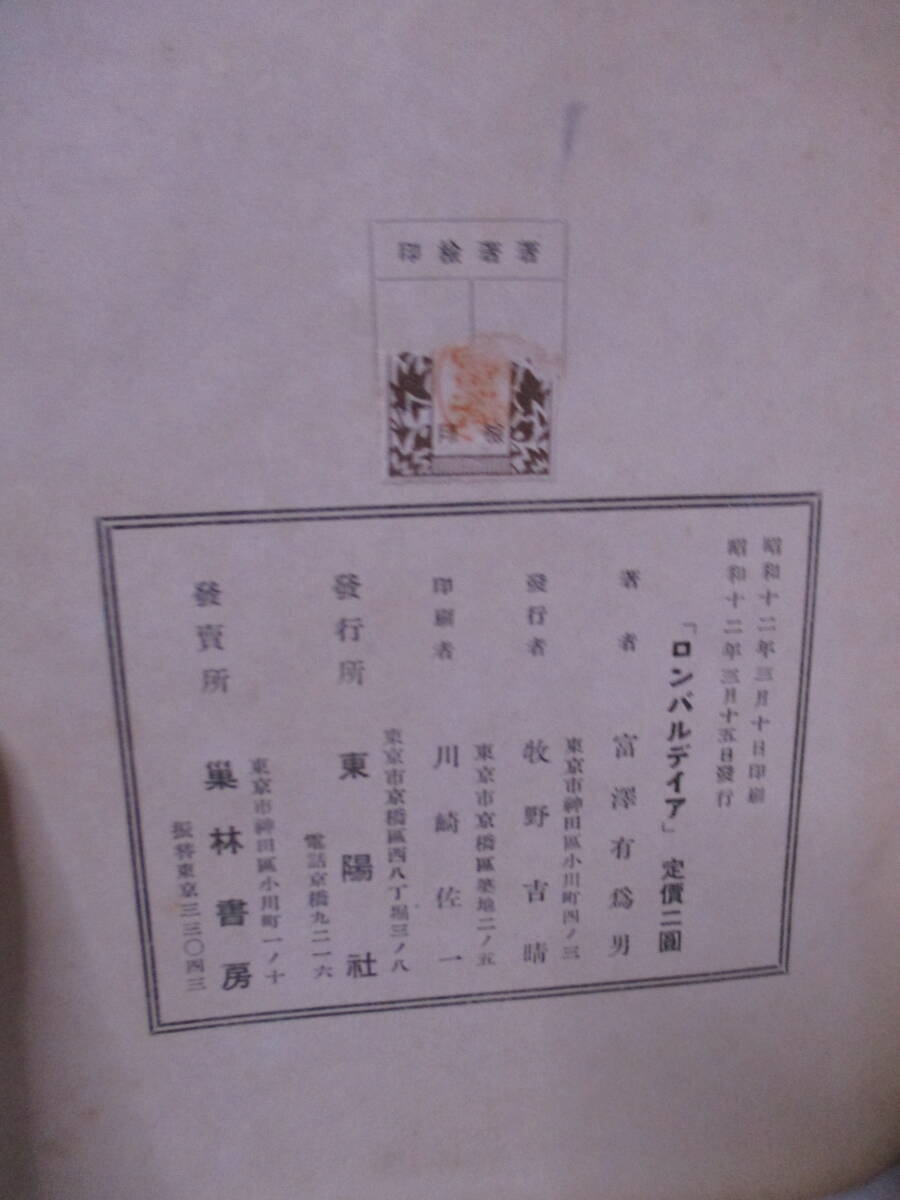 著著檢印
檢印
昭和十二年三月十日印刷
昭和十二年三月十五日發行
「ロンバルデイア」 定價二圓
著者 富澤有爲男
東京市神田區小川町四ノ三
發行者 牧野吉晴
東京市京橋區築地二ノ五
印刷者 川崎佐一
東京市京橋區西八丁堀三ノ八
發行所 東陽社
電話京橋九二一六
東京市神田區小川町一ノ十
發賣所 巢林書房
振替東京三三〇四三